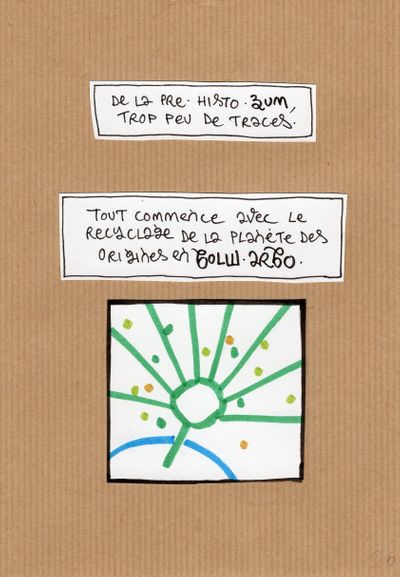 DE LA PRE. HISTO. ZUM,
TROP PEU DE TRACES.
TOUT COMMENCE AVEC LE
RECYCLAGE DE LA PLANÈTE DES
ORIGINES EN